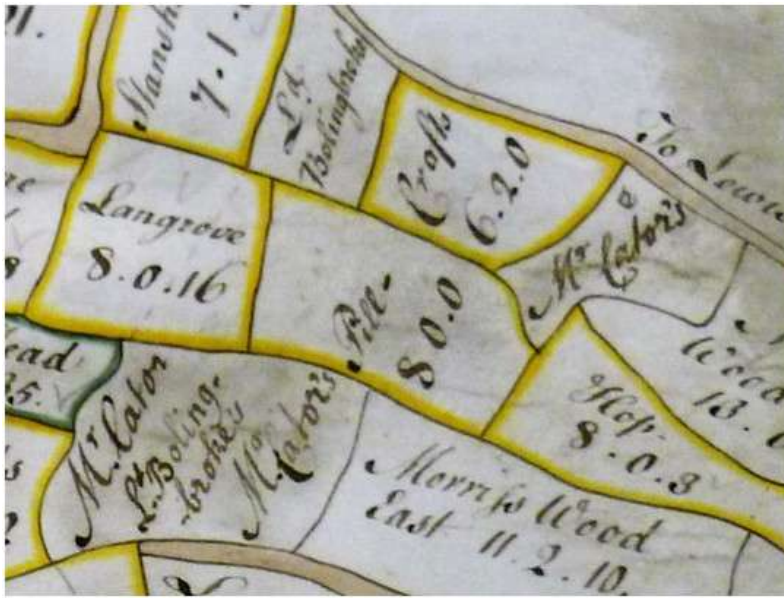 7.1.
Ld.
Bolingbroke
Croft
6.2.0
To
Langrove
8.0.16
Pill-
8 0.0
Mr. Cator's
ead
35.
Mr. Cator
Ld. Boling-
-broke's
Mr.
Cator's
Hop.
8.0.3
13.
Morriss Wood
East 11.2.10.